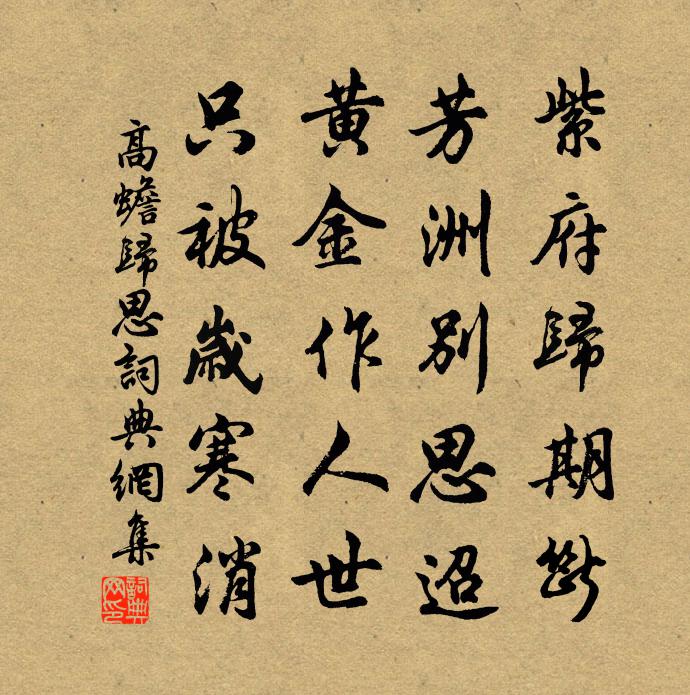 紫府歸期斷
芳洲別思迢
黃金作人世
只被歲寒消
高蟾歸思詞典網集
詞典网印